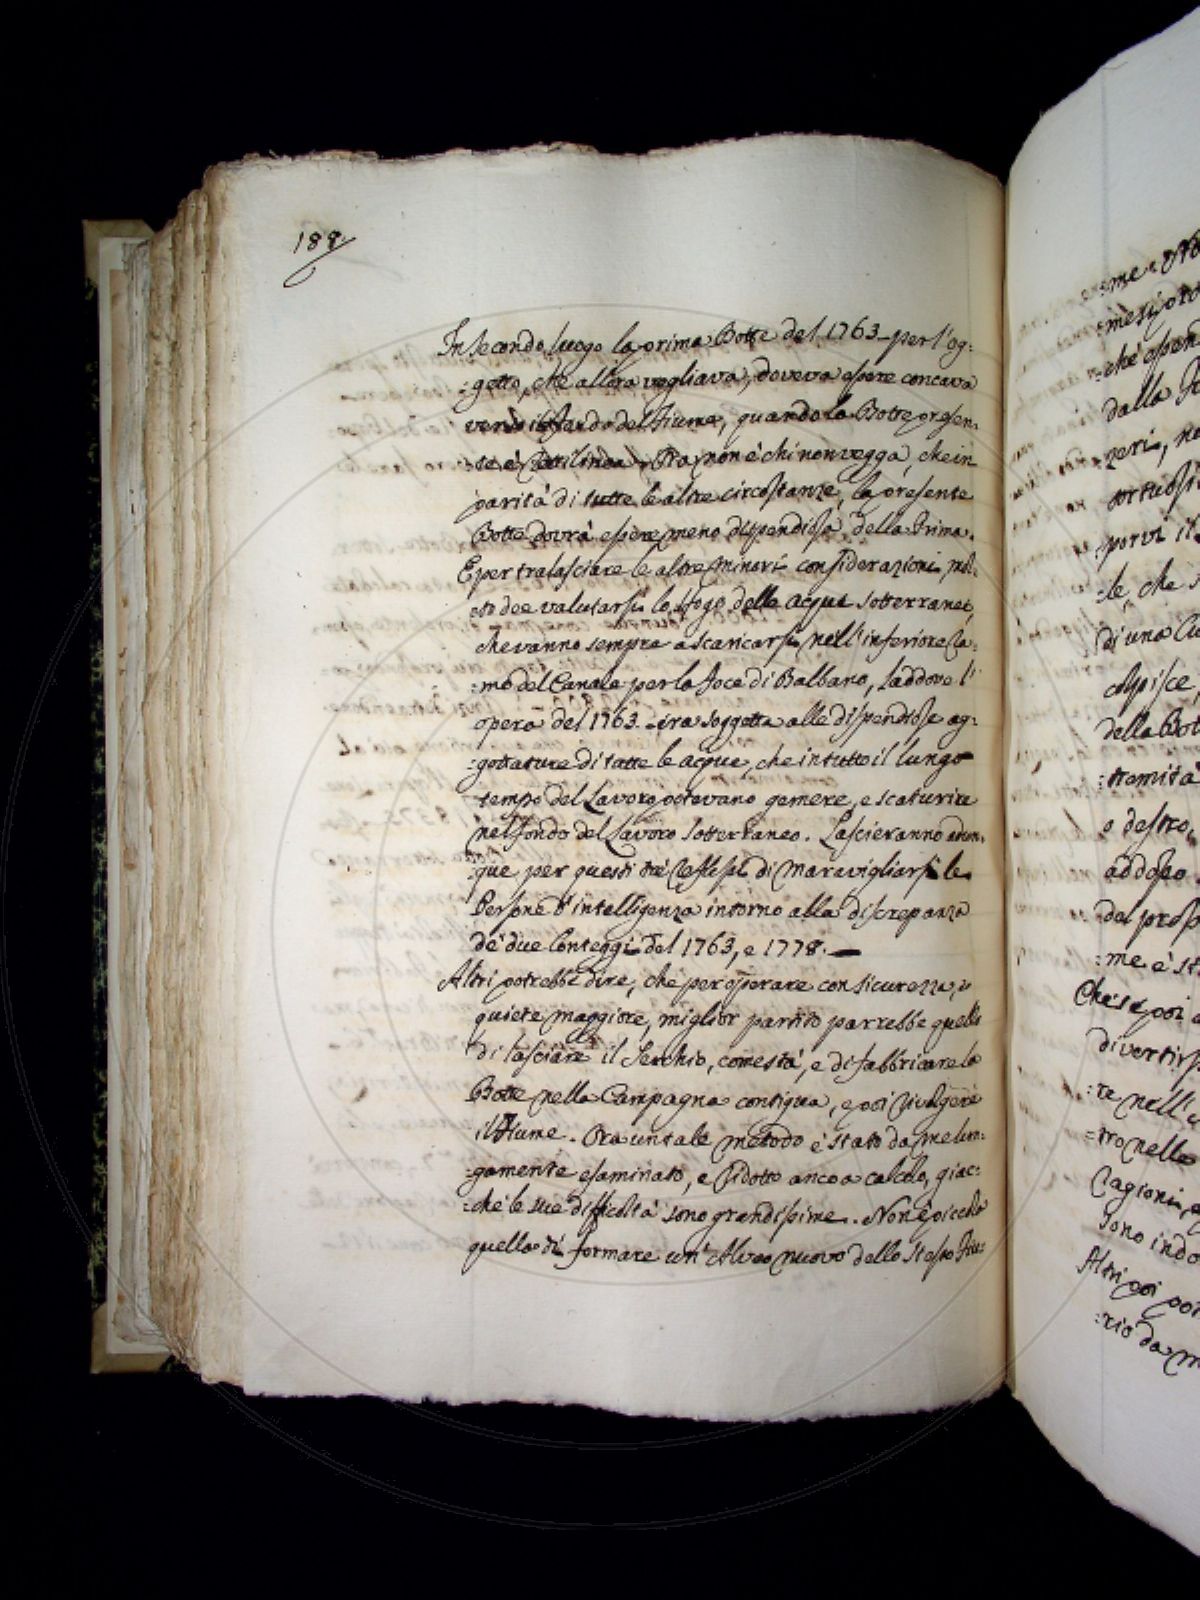 188
In secondo luogo la prima Botte del 1763 per l'og:
:getto, che allora vegliava, doveva essere concava
verso il fondo del Fiume, quando la Botte presen:
:te è Rettilinea. Ora non è chi non vegga, che in
parità di tutte le altre circostanze, la presente
Botte dovrà essere meno dispendiosa della Prima.
E per tralasciare le altre minori considerazioni, mol:
:to dee valutarsi lo sfogo delle acque sotterranee,
che vanno sempre a scaricarsi nell'inferiore Ra:
:mo del Canale per la Foce di Balbano, laddove l'
opera del 1763 era soggetta alle dispendiose ag:
:gottature di tutte le acque, che in tutto il lungo
tempo del Lavoro potevano gemere, e scaturire
nel fondo del Lavoro sotterraneo. Lascieranno adun:
:que per questi tre riflessi di maravigliarsi le
Persone d'intelligenza intorno alla discrepanza
de' due Conteggi del 1763, e 1778.
Altri potrebbe dire, che per operare con sicurezza, e
quiete maggiore, miglior partito parrebbe quello
di lasciare il Serchio, come stà, e di fabbricare la
Botte nella Campagna contigua, e poi rivolgere
il Fiume. Ora un tale metodo è stato da me lun:
:gamente esaminato, e ridotto anco a calcolo, giac:
:chè le sue difficoltà sono grandissime. Non è piccola
quella di formare un' Alveo nuovo dello stesso Fiu:
:me
:mesi
:che
dalla
:neri, no
tortuosi
porvi il
:le, che
di una
colpisce
della Bot
:tremità
o destro,
addosso
del prosp
:me è st
Che se poi
divertirs
:re nell'
:tro nelle
ragioni, e
sono indo
Altri poi
:rio da m